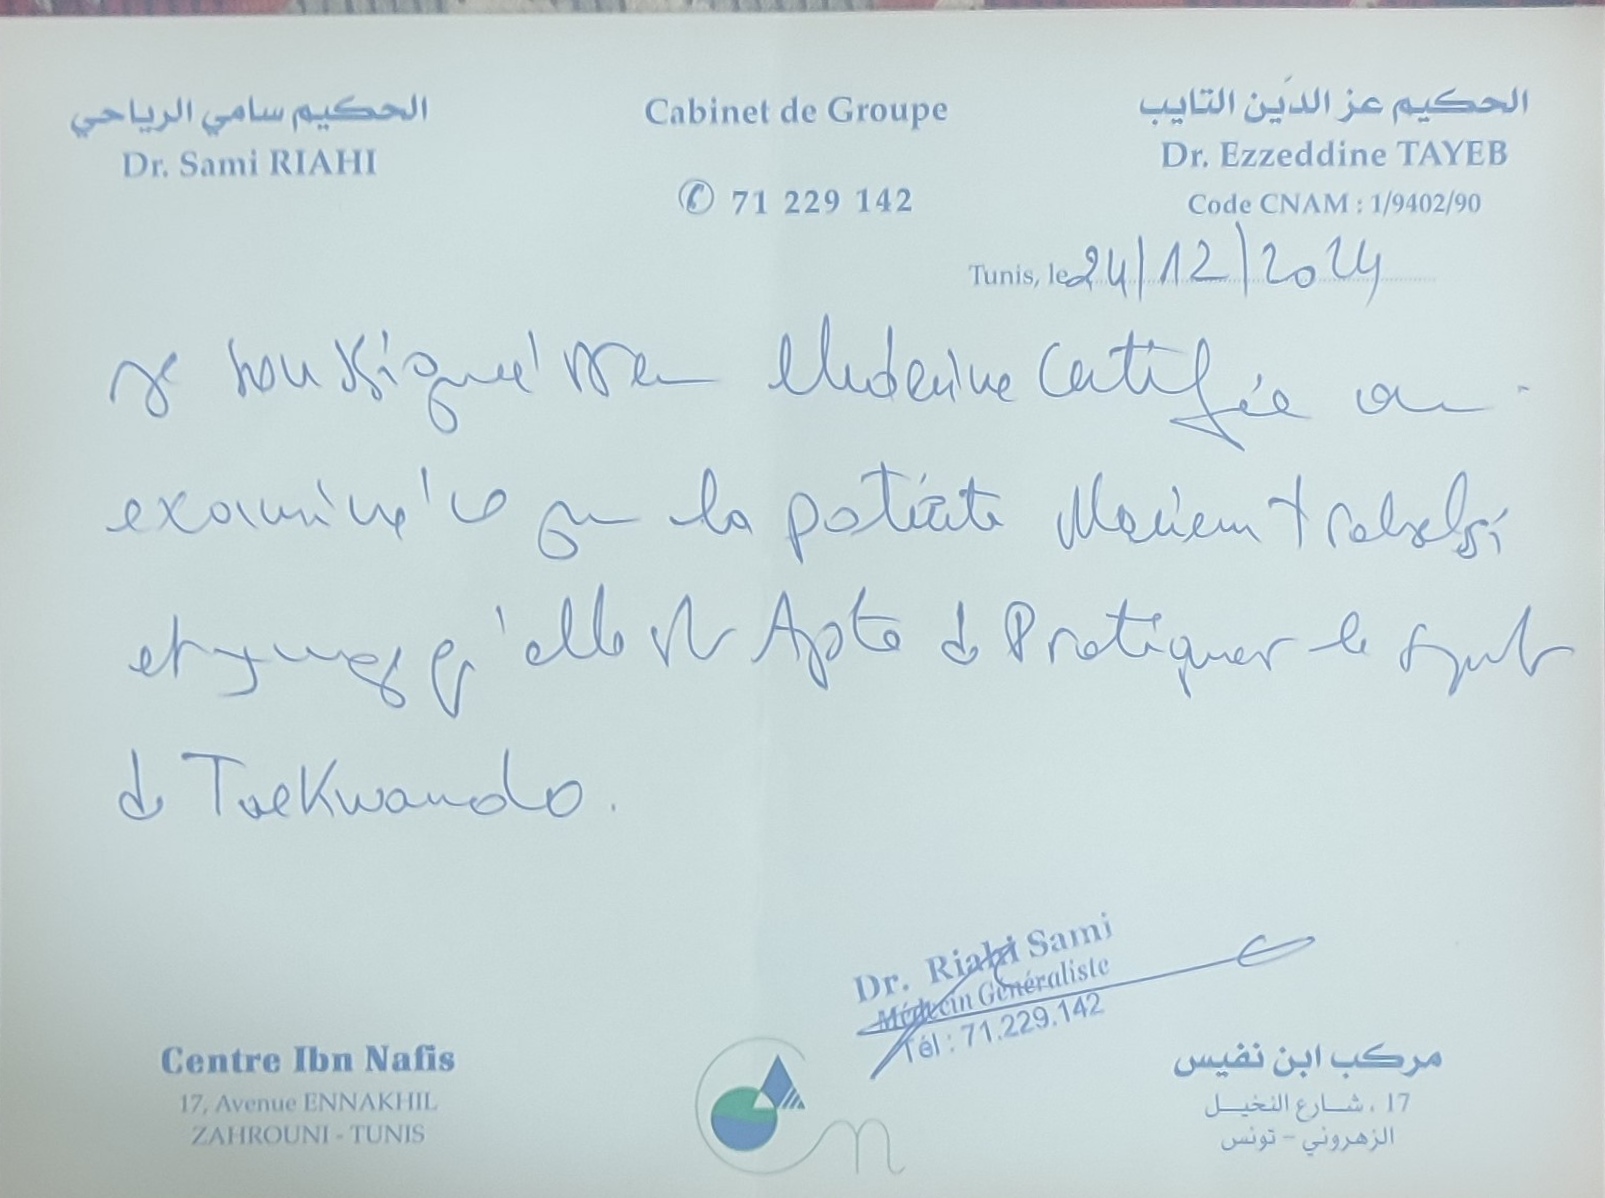 الحكيم سامي الرياحي
Dr. Sami RIAHI
Cabinet de Groupe
✆ 71 229 142
الحكيم عز الدّين التايب
Dr. Ezzeddine TAYEB
Code CNAM : 1/9402/90
Tunis, le 24/12/2024
Je soussigné Dr en Médecine Certifiée
examiné la patiente Mariem Trabelsi
et qu'elle est Apte de Pratiquer le sport
de Taekwando.
Dr. Riahi Sami
Médecin Généraliste
Tél : 71.229.142
Centre Ibn Nafis
17, Avenue ENNAKHIL
ZAHROUNI - TUNIS
مركب ابن نفيس
17 ، شــارع النخيــل
الزهروني - تونس